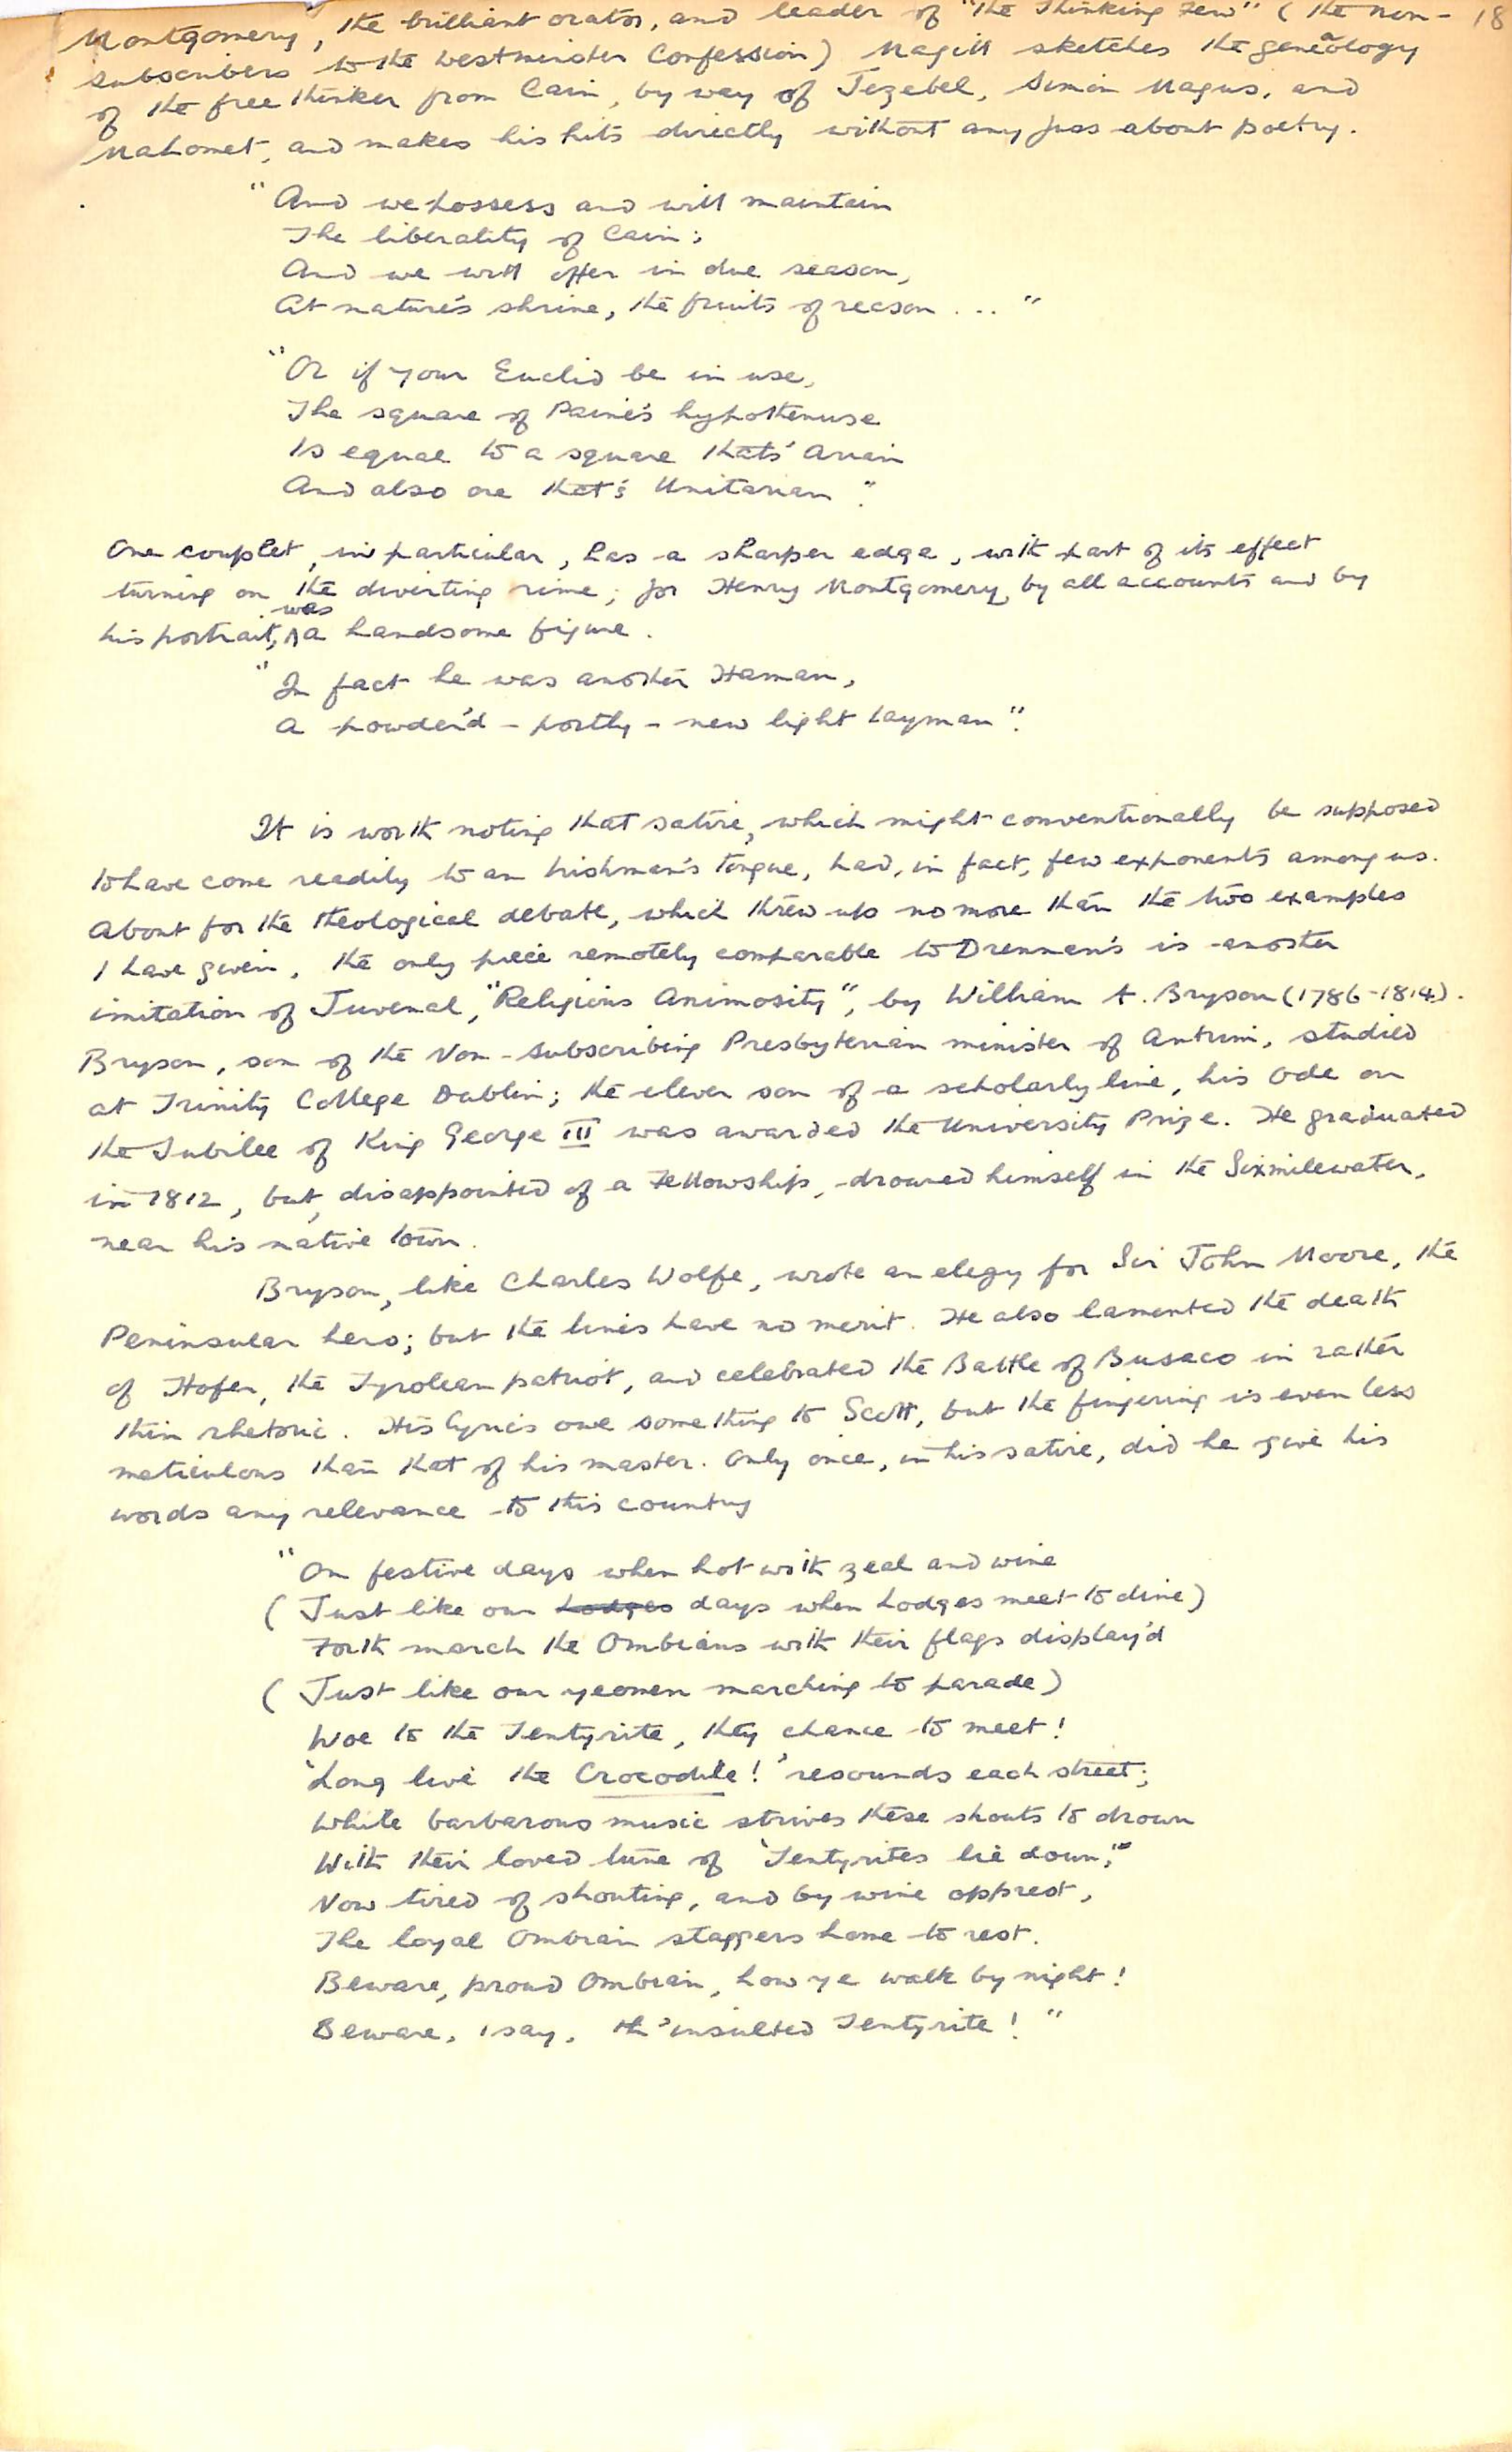 18
Montgomery, the brilliant orator, and leader of "The Thinking Few" (the Non-
subscribers to the Westminster Confession) Magill sketches the geneaology
of the free thinker from Cain, by way of Jezebel, Simon Magus, and
Mahomet, and makes his hits directly without any fuss about poetry.
"And we possess and will maintain
The liberality of Cain;
And we will offer in due season,
At nature's shrine, the fruits of reason ... "
"Or if your Euclid be in use,
The square of Paine's hypothenuse
Is equal to a square thats' Arian
And also one that's Unitarian".
One couplet, in particular, has a sharper edge, with part of its effect
turning on the diverting rime; for Henry Montgomery, by all accounts and by
his portrait, was a handsome figure.
"In fact he was another Haman,
A powder'd - portly - new light layman".
It is worth noting that satire, which might conventionally be supposed
to have come readily to an Irishman's tongue, had, in fact, few exponents among us.
About for the theological debate, which threw up no more than the two examples
I have given, the only piece remotely comparable to Drennan's is another
imitation of Juvenal, "Religious Animosity", by William A. Bryson (1786-1814).
Bryson, son of the Non-Subscribing Presbyterian minister of Antrim, studied
at Trinity College Dublin; the clever son of a scholarly line, his Ode on
the Jubilee of King George III was awarded the University Prize. He graduated
in 1812, but, disappointed of a Fellowship, drowned himself in the Sixmilewater,
near his native town.
Bryson, like Charles Wolfe, wrote an elegy for Sir John Moore, the
Peninsular hero; but the lines have no merit. He also lamented the death
of Hofer, the Tyrolean patriot, and celebrated the Battle of Busaco in rather
thin rhetoric. His lyrics owe something to Scott, but the fingering is even less
meticulous than that of his master. Only once, in his satire, did he give his
words any relevance to this country
"On festive days when hot with zeal and wine
(Just like our Lodges days when Lodges meet to dine)
Forth march the Ombians with their flags display'd
(Just like our yeomen marching to parade)
Woe to the Tentyrite, they chance to meet!
'Long live the Crocodile!' resounds each street;
While barbarous music strives these shouts to drown
With their loved tune of 'Tentyrites lie down,'"
Now tired of shouting, and by wine opprest,
The loyal Ombian staggers home to rest.
Beware, proud Ombian, how ye walk by night!
Beware, I say, th'insulted Tentyrite! "